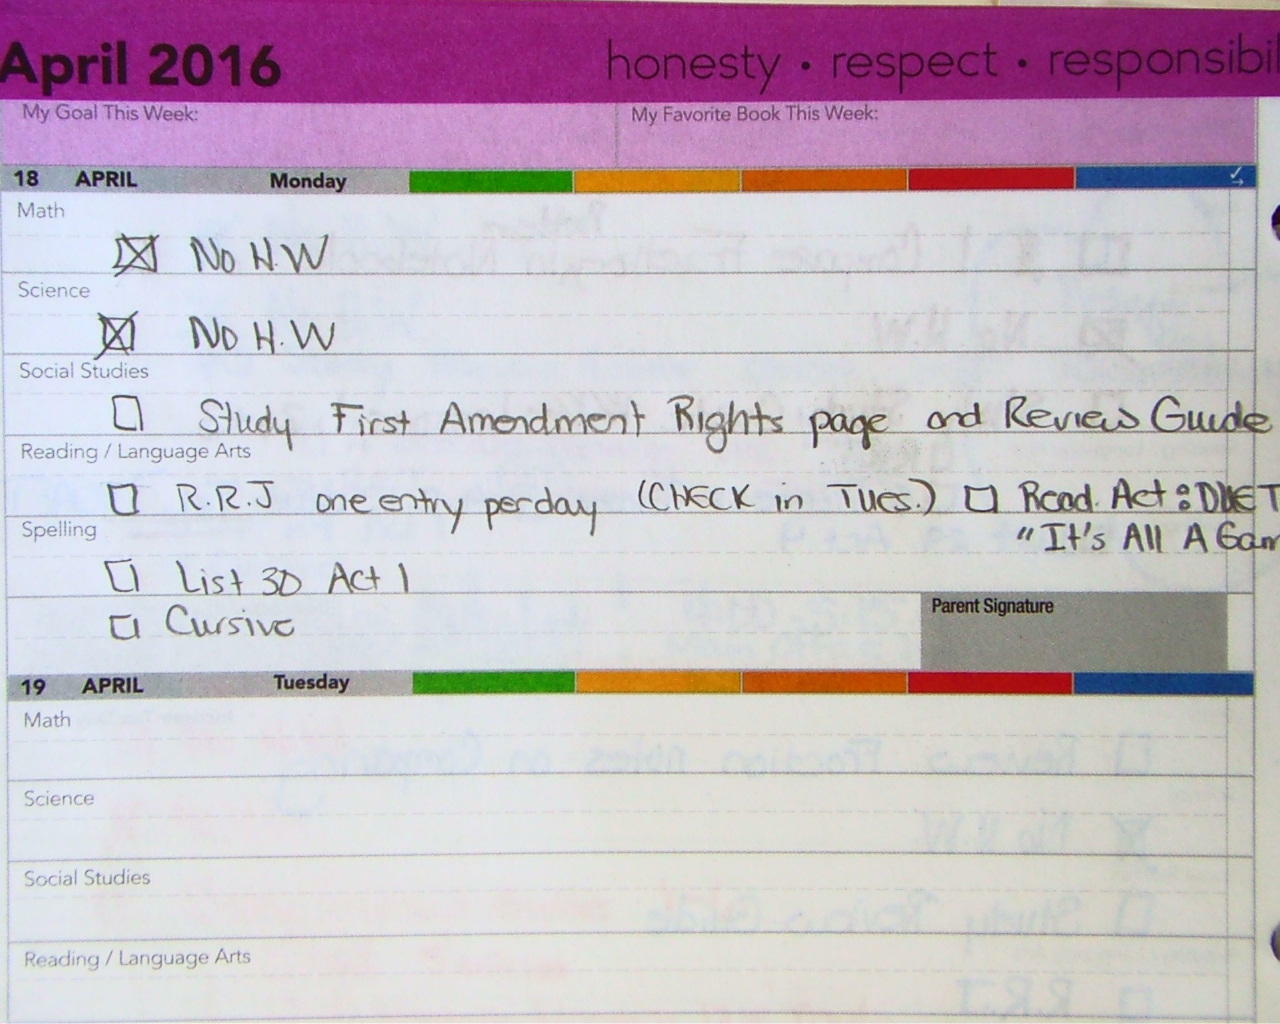 April 2016
honesty • respect • responsibil
My Goal This Week:
My Favorite Book This Week:
18 APRIL Monday
Math
No H.W
Science
No H.W
Social Studies
Study First Amendment Rights page and Review Guide
Reading / Language Arts
R.R.J one entry per day (CHECK in Tues.) Read. Act: DUE T
"It's All A Gam
Spelling
List 30 Act 1
Cursive
Parent Signature
19 APRIL Tuesday
Math
Science
Social Studies
Reading / Language Arts